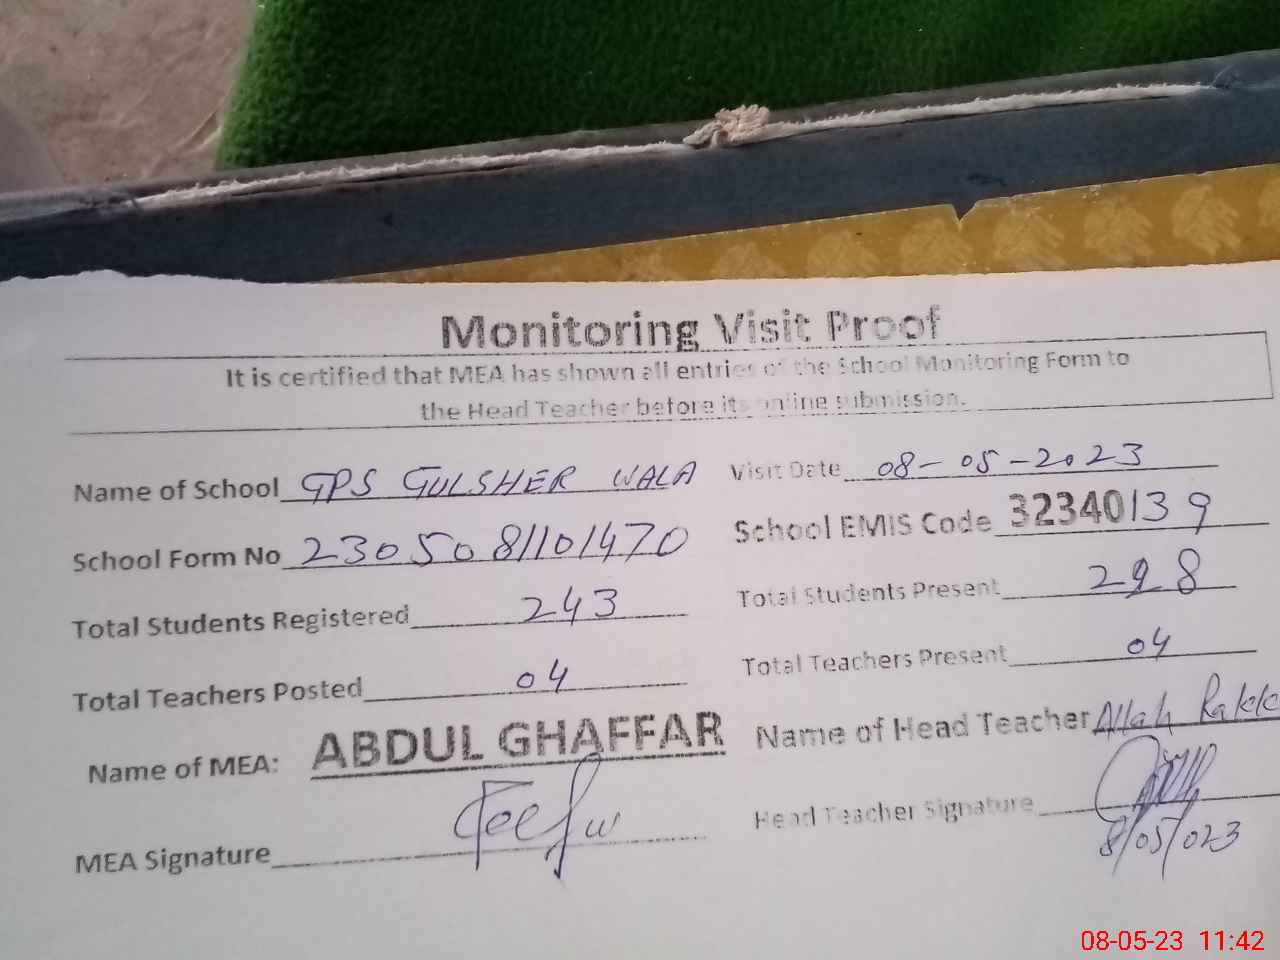 Monitoring Visit Proof
It is certified that MEA has shown all entries of the School Monitoring Form to
the Head Teacher before its online submission.
Name of School GPS GULSHER WALA Visit Date 08-05-2023
School Form No 2305081101470 School EMIS Code 32340139
Total Students Registered 243 Total Students Present
Total Teachers Posted 04 Total Teachers Present 04
Name of MEA: ABDUL GHAFFAR Name of Head Teacher Allah
MEA Signature Head Teacher Signature
8/05/023
08-05-23 11:42